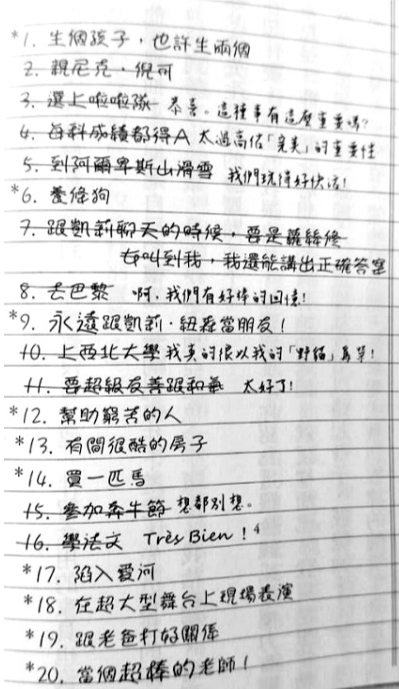 *1. 生個孩子，也許生兩個
2. 親尼克·倪可
3. 選上啦啦隊 恭喜。這種事有這麼重要嗎？
4. 每科成績都得A 太過高估「完美」的重要性
5. 到阿爾卑斯山滑雪 我們玩得好快活！
*6. 養條狗
7. 跟凱莉聊天的時候，要是蘿絲修
女叫到我，我還能講出正確答案
8. 去巴黎 啊，我們有好棒的回憶！
*9. 永遠跟凱莉·紐森當朋友！
10. 上西北大學 我真的很以我的「野貓」為榮！
11. 要超級友善跟和氣 太好了！
*12. 幫助窮苦的人
*13. 有間很酷的房子
*14. 買一匹馬
15. 參加奔牛節 想都別想。
16. 學法文 Très Bien！4
*17. 陷入愛河
*18. 在超大型舞台上現場表演
*19. 跟老爸打好關係
*20. 當個超棒的老師！